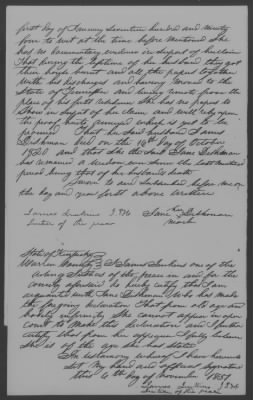 first day of January Seventeen hundred and ninety
four to wit at the time before mentioned She
has no documentary evidence in Support of her claim
That during the lifetime of her husband they got
their house burnt and all the papers together
with his discharges and having moved to the
State of Tennessee and being remote from the
place of his first residence She has no papers to
Show in Support of her claim and will rely upon
the proof hereto annexed which is yet to be
procured That her said husband James
Dishman died on the 10th day of October
1820 and that She the Said Jane Dishman
has remained a widow ever Since the last mentioned
period being that of her husbands death
Sworn to and Subscribed before me on
the day and year first above written
James Jenkins JPW
Jane her Dishman
mark
Justice of the peace
State of Kentucky
Warren County I James Jenkins one of the
acting Justices of the peace in and for the
county aforesaid do hereby certify that I am
acquainted with Jane Dishman who has made
the foregoing declaration That from old age and
bodily infirmity She cannot appear in open
court to make this declaration and I further
certify that from her appearance I fully believe
She is of the age She has Stated
In testimony whereof I have hereunto
Set My hand and official Signature
this 6th day of November 1851
James Jenkins JPW
Justice of the peace